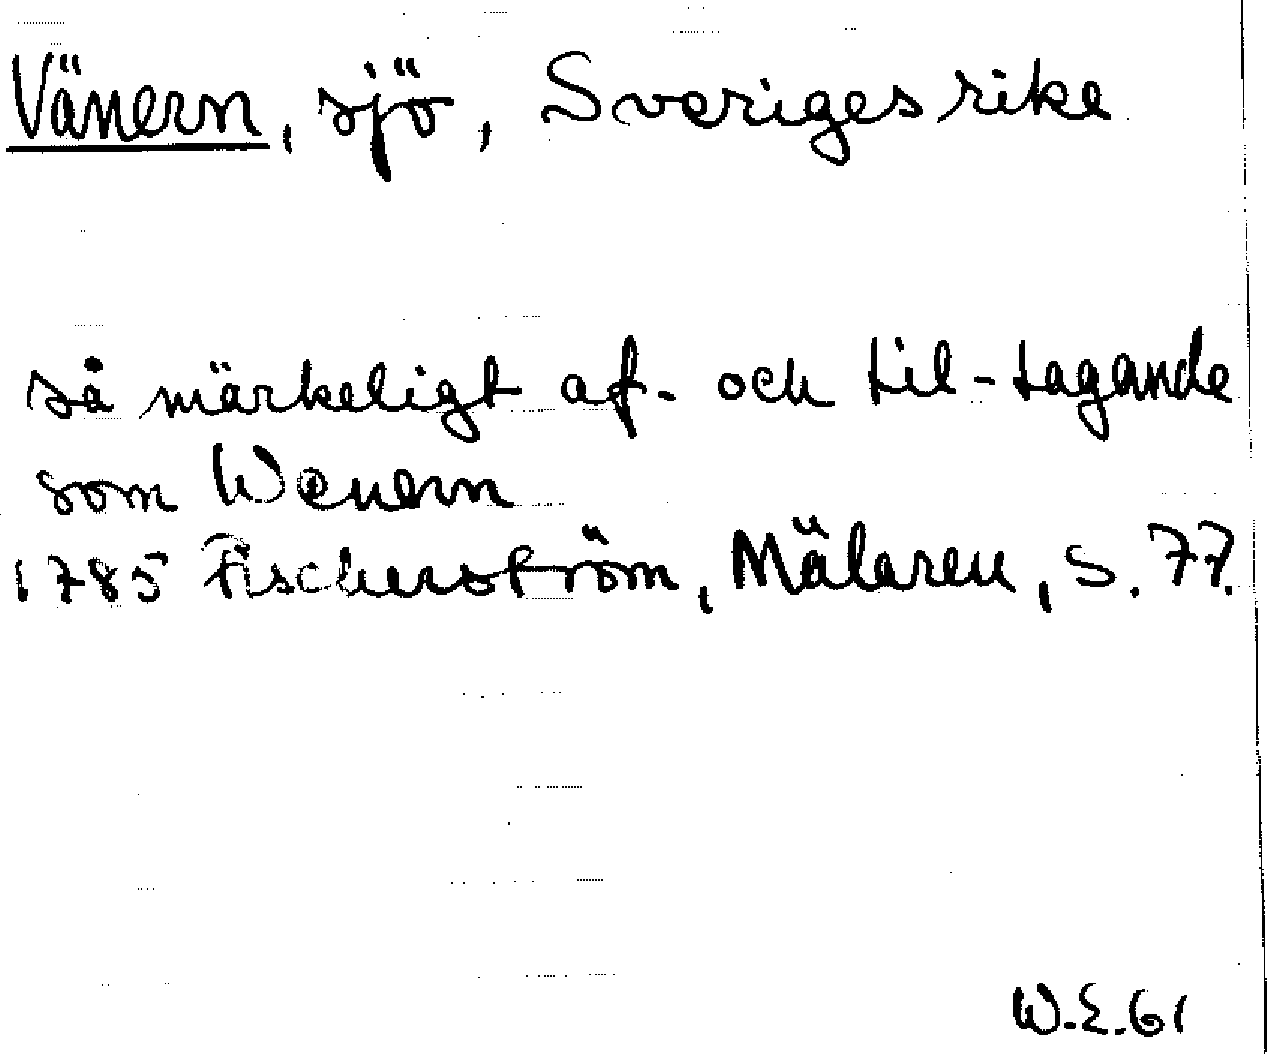 Vänern, sjö, Sveriges rike
så märkeligt af- och til-tagande
som Wenern
1785 Fischerström, Mälaren, S. 77.
W.E.61